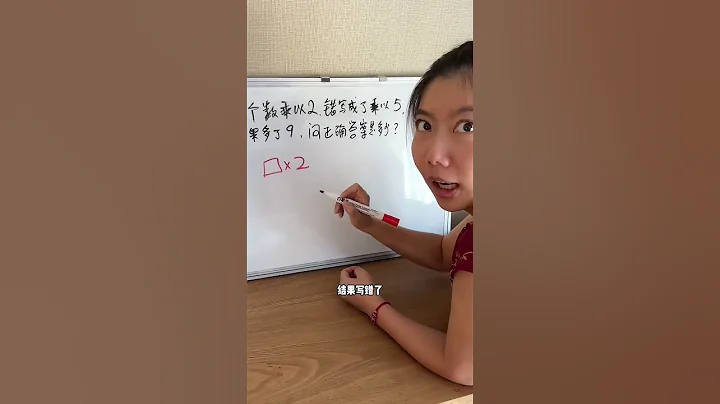 个数乘以2,错写成了乘以5,
果多了9,问正确答案是多少?
□×2
结果写错了